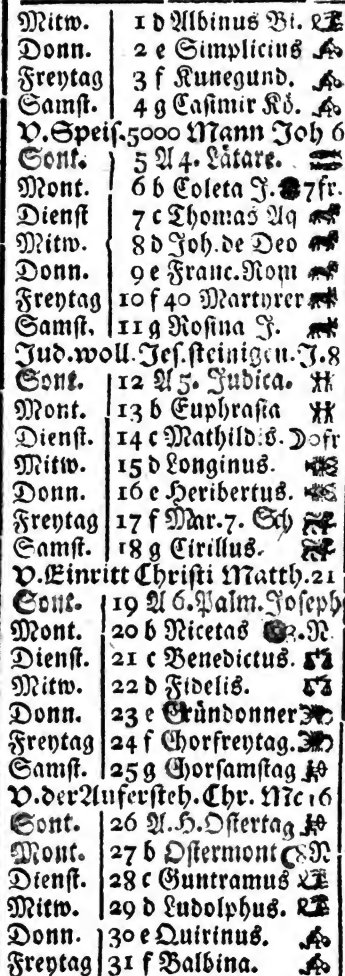 Mitw. 1 d Albinus Bi.
Donn. 2 e Simplicius
Freytag 3 f Kunegund.
Samst. 4 g Casimir Kö.
V. Speis. 5000 Mann Joh 6
Sont. 5 A 4. Lätare.
Mont. 6 b Coleta J. 7 fr.
Dienst 7 c Thomas Aq
Mitw. 8 d Joh. de Deo
Donn. 9 e Franc. Rom
Freytag 10 f 40 Martyrer
Samst. 11 g Rosina J.
Jud. woll. Jes. steinigen. J. 8
Sont. 12 A 5. Judica.
Mont. 13 b Euphrasia
Dienst. 14 c Mathildis. ☽ 0 fr
Mitw. 15 d Longinus.
Donn. 16 e Heribertus.
Freytag 17 f Mar. 7. Sch
Samst. 18 g Cirillus.
V. Einritt Christi Matth. 21
Sont. 19 A 6. Palm. Joseph
Mont. 20 b Nicetas N.
Dienst. 21 c Benedictus.
Mitw. 22 d Fidelis.
Donn. 23 e Gründonner
Freytag 24 f Chorfreytag.
Samst. 25 g Chorsamstag
V. der Aufersteh. Chr. Mc 16
Sont. 26 A. H. Ostertag
Mont. 27 b Ostermont ☾ 8 N
Dienst. 28 c Guntramus
Mitw. 29 d Ludolphus.
Donn. 30 e Quirinus.
Freytag 31 f Balbina.